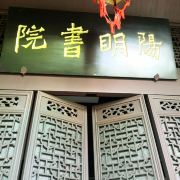 陽明書院